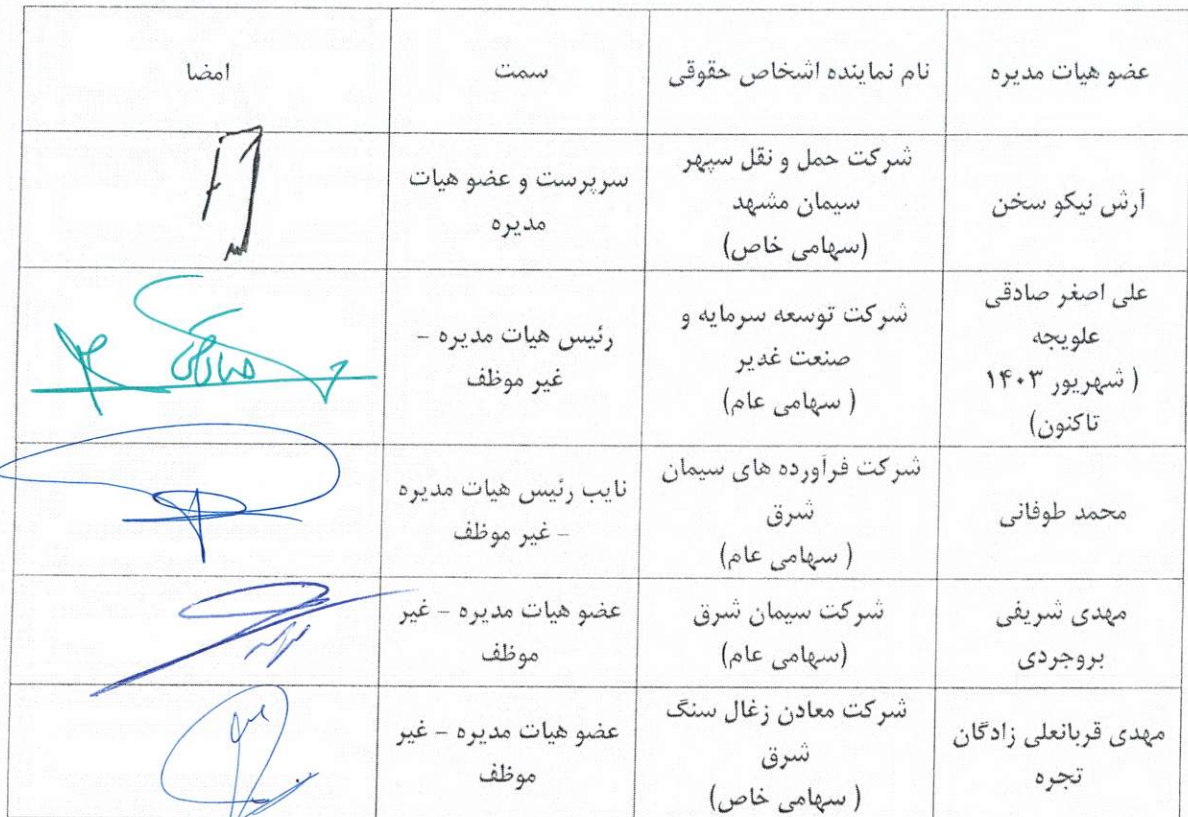 عضو هیات مدیره
نام نماینده اشخاص حقوقی
سمت
امضا
آرش نیکو سخن
شرکت حمل و نقل سپهر
سیمان مشهد
(سهامی خاص)
سرپرست و عضو هیات
مدیره
علی اصغر صادقی
علویجه
( شهریور ۱۴۰۳
تاکنون)
شرکت توسعه سرمایه و
صنعت غدیر
( سهامی عام)
رئیس هیات مدیره –
غیر موظف
محمد طوفانی
شرکت فرآورده های سیمان
شرق
( سهامی عام)
نایب رئیس هیات مدیره
– غیر موظف
مهدی شریفی
بروجردی
شرکت سیمان شرق
(سهامی عام)
عضو هیات مدیره – غیر
موظف
مهدی قربانعلی زادگان
تجره
شرکت معادن زغال سنگ
شرق
( سهامی خاص)
عضو هیات مدیره – غیر
موظف